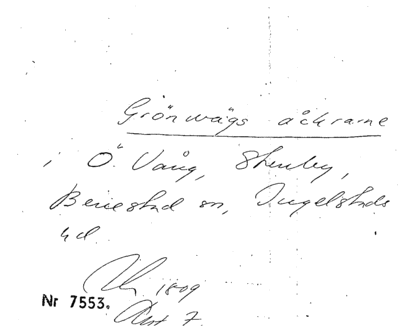 Grönwägs åckrarne
i Ö. Vång, Stenby,
Benestad sn, Ingelstads
hd
1809
Nr 7553. 7.